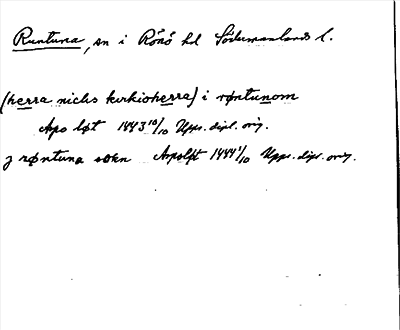 Runtuna, sn i Rönö hd Södermanlands l.
(herra niclis kirkioherra) i røntunom
Aps løt 1443 10/10 Upps. dipl. orig.
j røntuna sokn Aspløt 1444 1/10 Upps. dipl. orig.